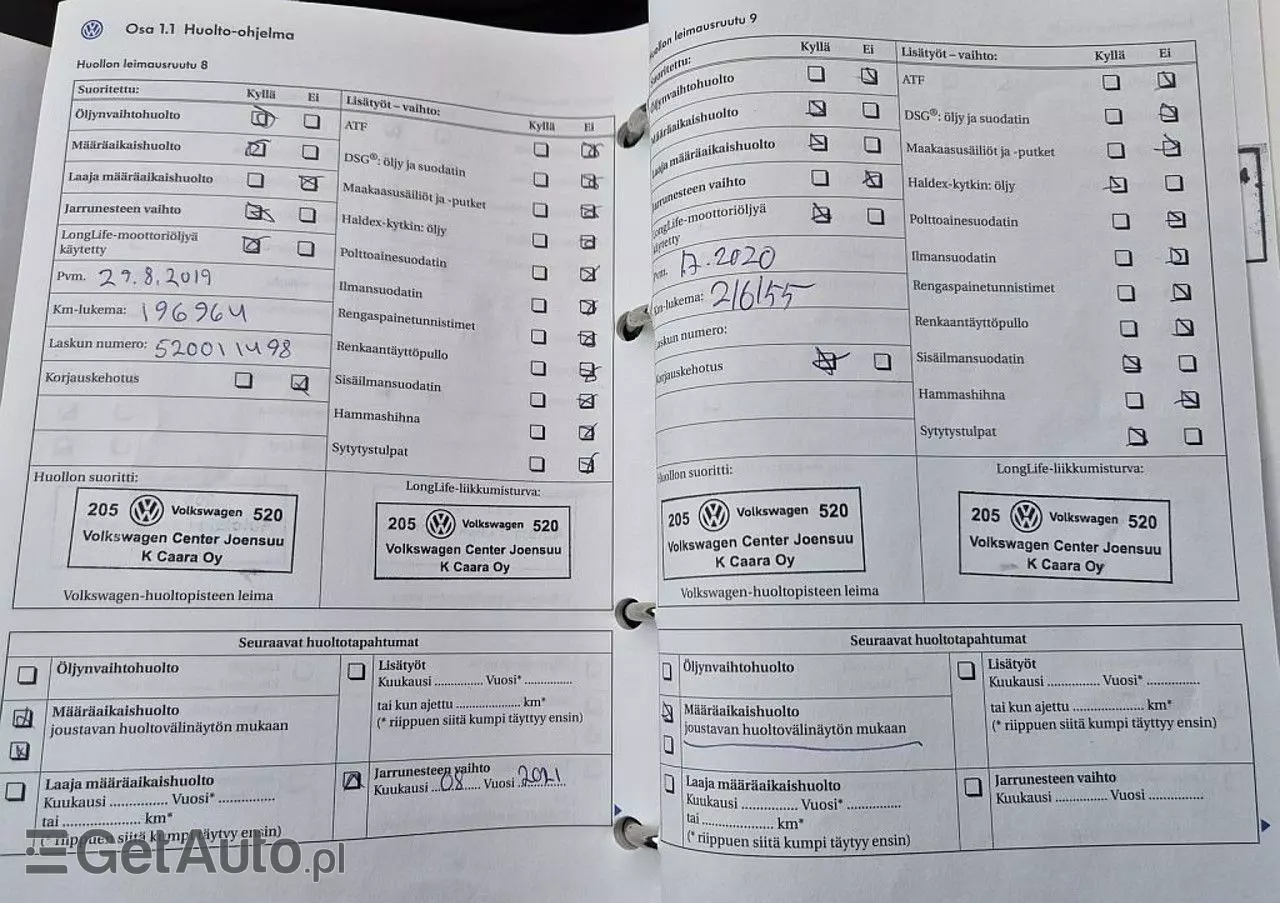 Osa 1.1 Huolto-ohjelma
Huollon leimausruutu 8
Suoritettu: Kyllä Ei
Öljynvaihtohuolto
Määräaikaishuolto
Laaja määräaikaishuolto
Jarrunesteen vaihto
LongLife-moottoriöljyä
käytetty
Pvm. 29.8.2019
Km-lukema: 196964
Laskun numero: 520011498
Korjauskehotus
Lisätyöt – vaihto: Kyllä Ei
ATF
DSG®: öljy ja suodatin
Maakaasusäiliöt ja -putket
Haldex-kytkin: öljy
Polttoainesuodatin
Ilmansuodatin
Rengaspainetunnistimet
Renkaantäyttöpullo
Sisäilmansuodatin
Hammashihna
Sytytystulpat
Huollon suoritti:
205 Volkswagen 520
Volkswagen Center Joensuu
K Caara Oy
Volkswagen-huoltopisteen leima
LongLife-liikkumisturva:
205 Volkswagen 520
Volkswagen Center Joensuu
K Caara Oy
Seuraavat huoltotapahtumat
Öljynvaihtohuolto
Määräaikaishuolto
joustavan huoltovälinäytön mukaan
Laaja määräaikaishuolto
Kuukausi .............. Vuosi* ..............
tai .................... km*
(* riippuen siitä kumpi täytyy ensin)
Lisätyöt
Kuukausi .............. Vuosi* ..............
tai kun ajettu .................... km*
(* riippuen siitä kumpi täyttyy ensin)
Jarrunesteen vaihto
Kuukausi 08 Vuosi 2021
Huollon leimausruutu 9
Suoritettu: Kyllä Ei
Öljynvaihtohuolto
Määräaikaishuolto
Laaja määräaikaishuolto
Jarrunesteen vaihto
LongLife-moottoriöljyä
käytetty
Pvm. 17.2020
Km-lukema: 216155
Laskun numero:
Korjauskehotus
Lisätyöt – vaihto: Kyllä Ei
ATF
DSG®: öljy ja suodatin
Maakaasusäiliöt ja -putket
Haldex-kytkin: öljy
Polttoainesuodatin
Ilmansuodatin
Rengaspainetunnistimet
Renkaantäyttöpullo
Sisäilmansuodatin
Hammashihna
Sytytystulpat
Huollon suoritti:
205 Volkswagen 520
Volkswagen Center Joensuu
K Caara Oy
Volkswagen-huoltopisteen leima
LongLife-liikkumisturva:
205 Volkswagen 520
Volkswagen Center Joensuu
K Caara Oy
Seuraavat huoltotapahtumat
Öljynvaihtohuolto
Määräaikaishuolto
joustavan huoltovälinäytön mukaan
Laaja määräaikaishuolto
Kuukausi .............. Vuosi* ..............
tai .................... km*
(* riippuen siitä kumpi täytyy ensin)
Lisätyöt
Kuukausi .............. Vuosi* ..............
tai kun ajettu .................... km*
(* riippuen siitä kumpi täyttyy ensin)
Jarrunesteen vaihto
Kuukausi .............. Vuosi ..............
GetAuto.pl